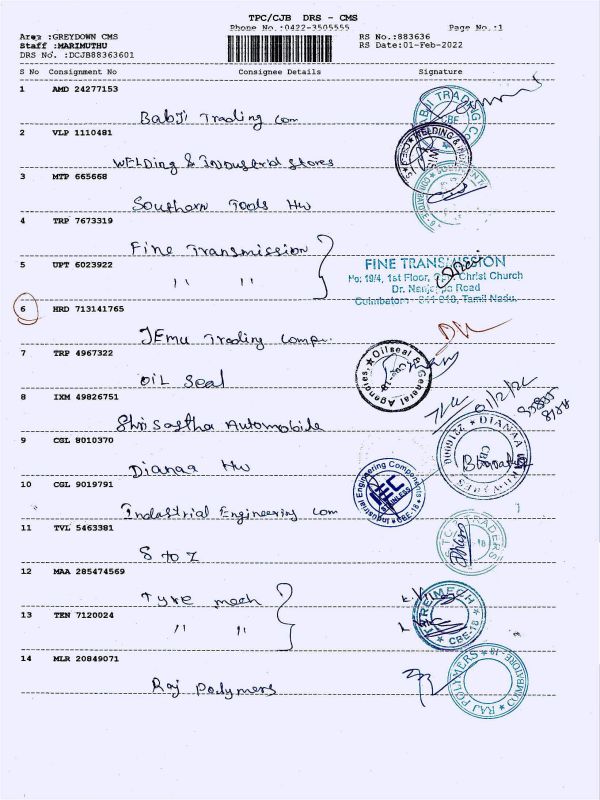 TPC/CJB DRS - CMS
Phone No.:0422-3505555 Page No.:1
Area :GREYDOWN CMS RS No.:883636
Staff :MARIMUTHU RS Date:01-Feb-2022
DRS No. :DCJB88363601
S No Consignment No Consignee Details Signature
1 AMD 24277153
Babji Trading Com
2 VLP 1110481
WELDING & Industrial Stores
3 MTP 665668
Southern Tools HW
4 TRP 7673319
Fine Transmission
5 UPT 6023922
" "
FINE TRANSMISSION
No: 19/4, 1st Floor, Christ Church
Dr. Nanjappa Road
Coimbatore - 641 018, Tamil Nadu.
6 HRD 713141765
JEmu Trading Comp.
7 TRP 4967322
OIL Seal
Oilseal & General Agencies
8 IXM 49826751
Shri Sastha Automobile
1/2/22
9 CGL 8010370
Dianaa HW
DIANAA
10 CGL 9019791
Industrial Engineering Com
Industrial Engineering Components
CBE-18
11 TVL 5463381
S to Z
TRADERS
12 MAA 285474569
Tyre mech
13 TEN 7120024
" "
CBE-18
14 MLR 20849071
Raj Polymers
RAJ POLYMERS COIMBATORE - 18